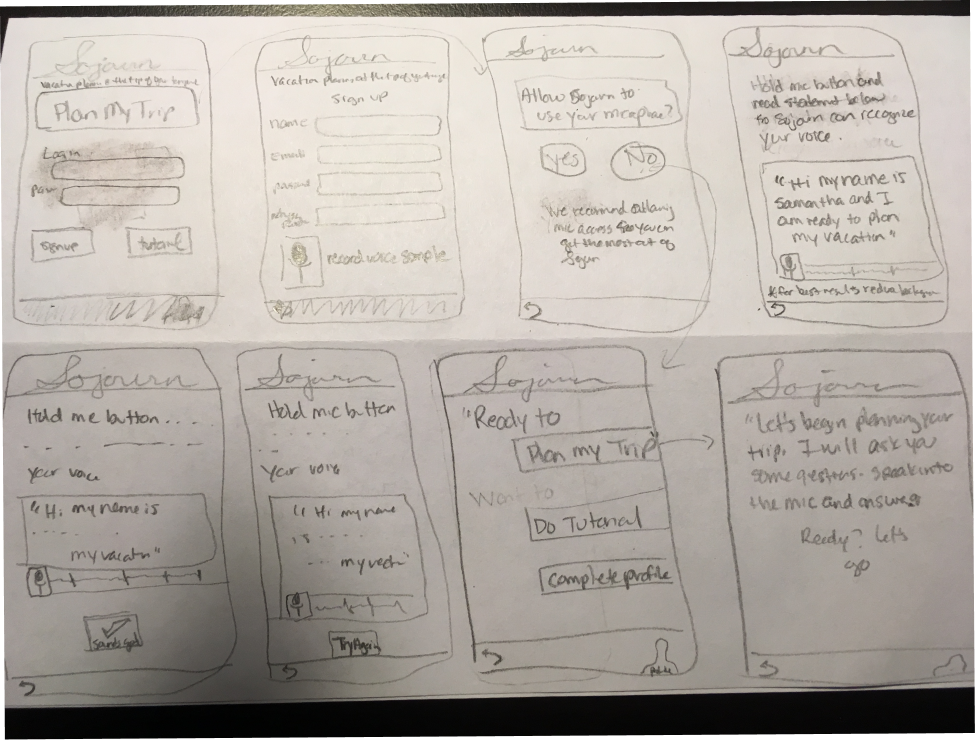 Sojourn
Plan My Trip
Login
signup
tutorial
Sojourn
Sign up
name
Email
record voice sample
Sojourn
Allow Sojourn to
use your microphone?
yes
No
We recommend
mic access so you can
get the most out of
Sojourn
Hold mic button and
read statement below
so Sojourn can recognize
your voice.
"Hi my name is
Samantha and I
am ready to plan
my vacation"
*for best results reduce
Sojourn
Hold mic button ....
your voice
"Hi my name is
.....
my vacatn"
Sounds good
Sojourn
Hold mic button
.....
Your voice
"Hi my name
is ....
... my vactn"
Try Again
Sojourn
"Ready to
Plan my Trip"
Want to
Do Tutorial
Complete profile
Sojourn
"Let's begin planning your
trip. I will ask you
some questions. Speak into
the mic and answer
Ready? Let's
go